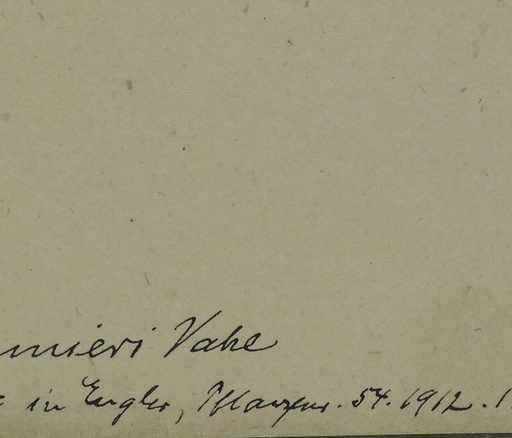 mieri Vahl
in Engler, Pflanzenr. 54. 1912.